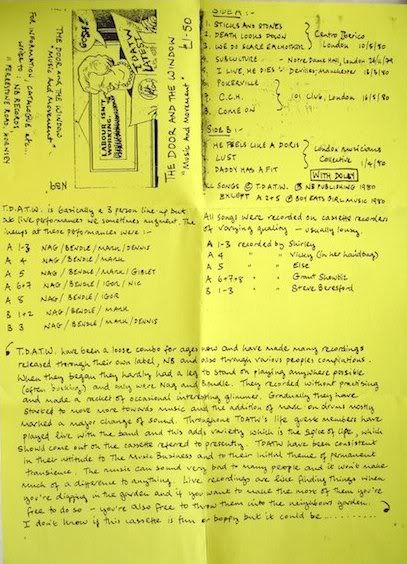 GOSH!
TDATW
LATEST
LABOUR ISN'T
WORKING.
THE DOOR AND THE WINDOW
"Music and Movement"
£1·50
THE DOOR AND THE WINDOW
"Music and Movement"
FOR INFORMATION, CATALOGUE etc...
WRITE TO: NB RECORDS
SIDE A:
1. STICKS AND STONES
2. DEATH LOOKS DOWN
3. WE DO SCARE EACHOTHER
Centro Iberico
London 10/5/80
4. SUBCULTURE - Notre Dame Hall, London
5. I LIVE, HE DIES - Manchester
6. POKERVILLE
7. C.C.H.
8. COME ON
101 Club, London
SIDE B:-
1. HE FEELS LIKE A DORIS
2. LUST
3. DADDY HAS A FIT
London Musicians
Collective
1/4/80
WITH DOLBY
ALL SONGS © T.D.A.T.W. Ⓟ NB PUBLISHING 1980
EXCEPT A 2+5 Ⓟ BOY EATS GIRL MUSIC 1980
T.D.A.T.W. is basically a 3 person line-up but
at live performances we sometimes augment. The
lineups at these performances were:-
A 1-3 NAG/BENDLE/MARK/DENNIS
A 4 NAG/BENDLE/MARK
A 5 NAG/BENDLE/MARK/GIBLET
A 6+7 NAG/BENDLE/IGOR/NIC
A 8 NAG/BENDLE/IGOR
B 1+2 NAG/BENDLE/MARK
B 3 NAG/BENDLE/MARK/DENNIS
All songs were recorded on cassette recorders
of varying quality - usually lousy.
A 1-3 recorded by Shirley
A 4 " " Vicky (in her handbag)
A 5 " " Else
A 6+7+8 " " Grant Showbiz
B 1-3 " " Steve Beresford
T.D.A.T.W. have been a loose combo for ages now and have made many recordings
released through their own label, NB and also through various peoples compilations.
When they began they hardly had a leg to stand on playing anywhere possible
(often busking) and only were Nag and Bendle. They recorded without practising
and made a racket of occasional interesting glimmer. Gradually they have
started to move more towards music and the addition of Mark on drums mostly
marked a major change of sound. Throughout TDATW's life guest members have
played live with the band and this adds variety which is the spice of life, which
should come out on the cassette referred to presently. TDATW have been consistent
in their attitude to The Music Business and to their initial theme of permanent
transience. The music can sound very bad to many people and it won't make
much of a difference to anything. Live recordings are like finding things when
you're digging in the garden and if you want to make the most of them you're
free to do so - you're also free to throw them into the neighbours garden.
I don't know if this cassette is fun or boppy but it could be...........